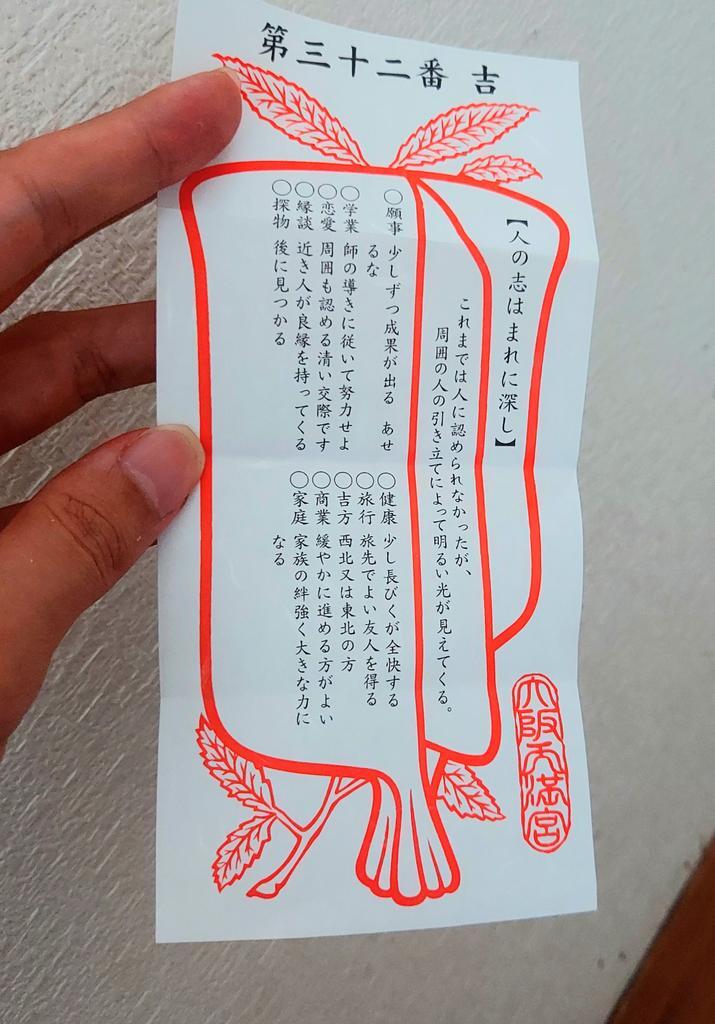 第三十二番 吉
【人の志はまれに深し】
これまでは人に認められなかったが、
周囲の人の引き立てによって明るい光が見えてくる。
○願事 少しずつ成果が出る あせ
るな
○学業 師の導きに従いて努力せよ
○恋愛 周囲も認める清い交際です
○縁談 近き人が良縁を持ってくる
○探物 後に見つかる
○健康 少し長びくが全快する
○旅行 旅先でよい友人を得る
○吉方 西北又は東北の方
○商業 緩やかに進める方がよい
○家庭 家族の絆強く大きな力に
なる
大阪天満宮